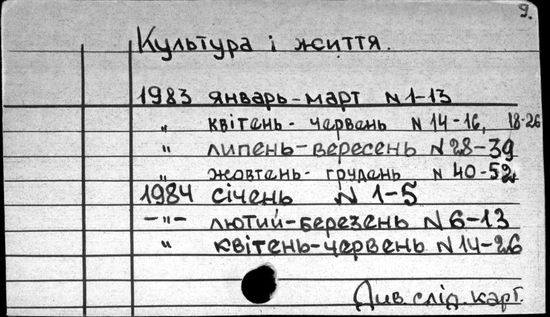 9.
Культура і життя.
1983 январь-март N 1-13
„ квітень - червень N 14-16, 18-26
„ липень-вересень N 28-39
„ жовтень - грудень N 40-52
1984 січень N 1-5
-„- лютий-березень N 6-13
„ квітень-червень N 14-26
Див. слід. карт.